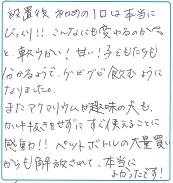 設置後初めの1口は本当に
びっくり!!こんなにも変わるのか〜
と、軟らかい!甘い!子どもたちも
分かるようで、ゲビグビ飲むように
なりました。
またアクアリウムが趣味の夫も、
カルキ抜きをせずにすぐ使えることに
感動!!ペットボトルの大量買い
からも解放されて、本当に
よかったです!